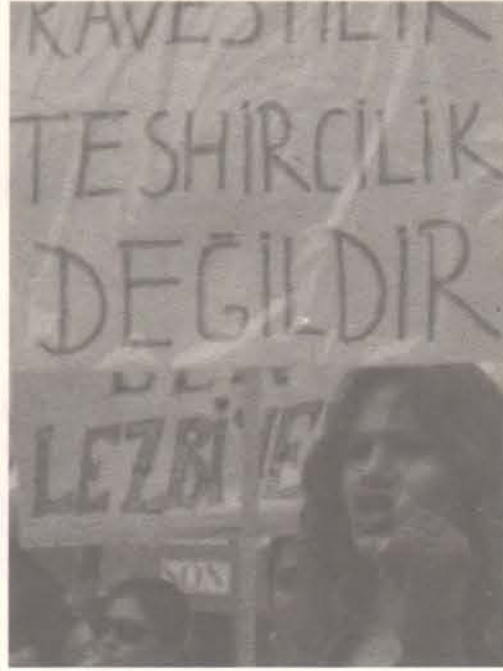 RAVESTİLİK
TESHİRCİLİK
DEĞİLDİR
LEZBİ
SON